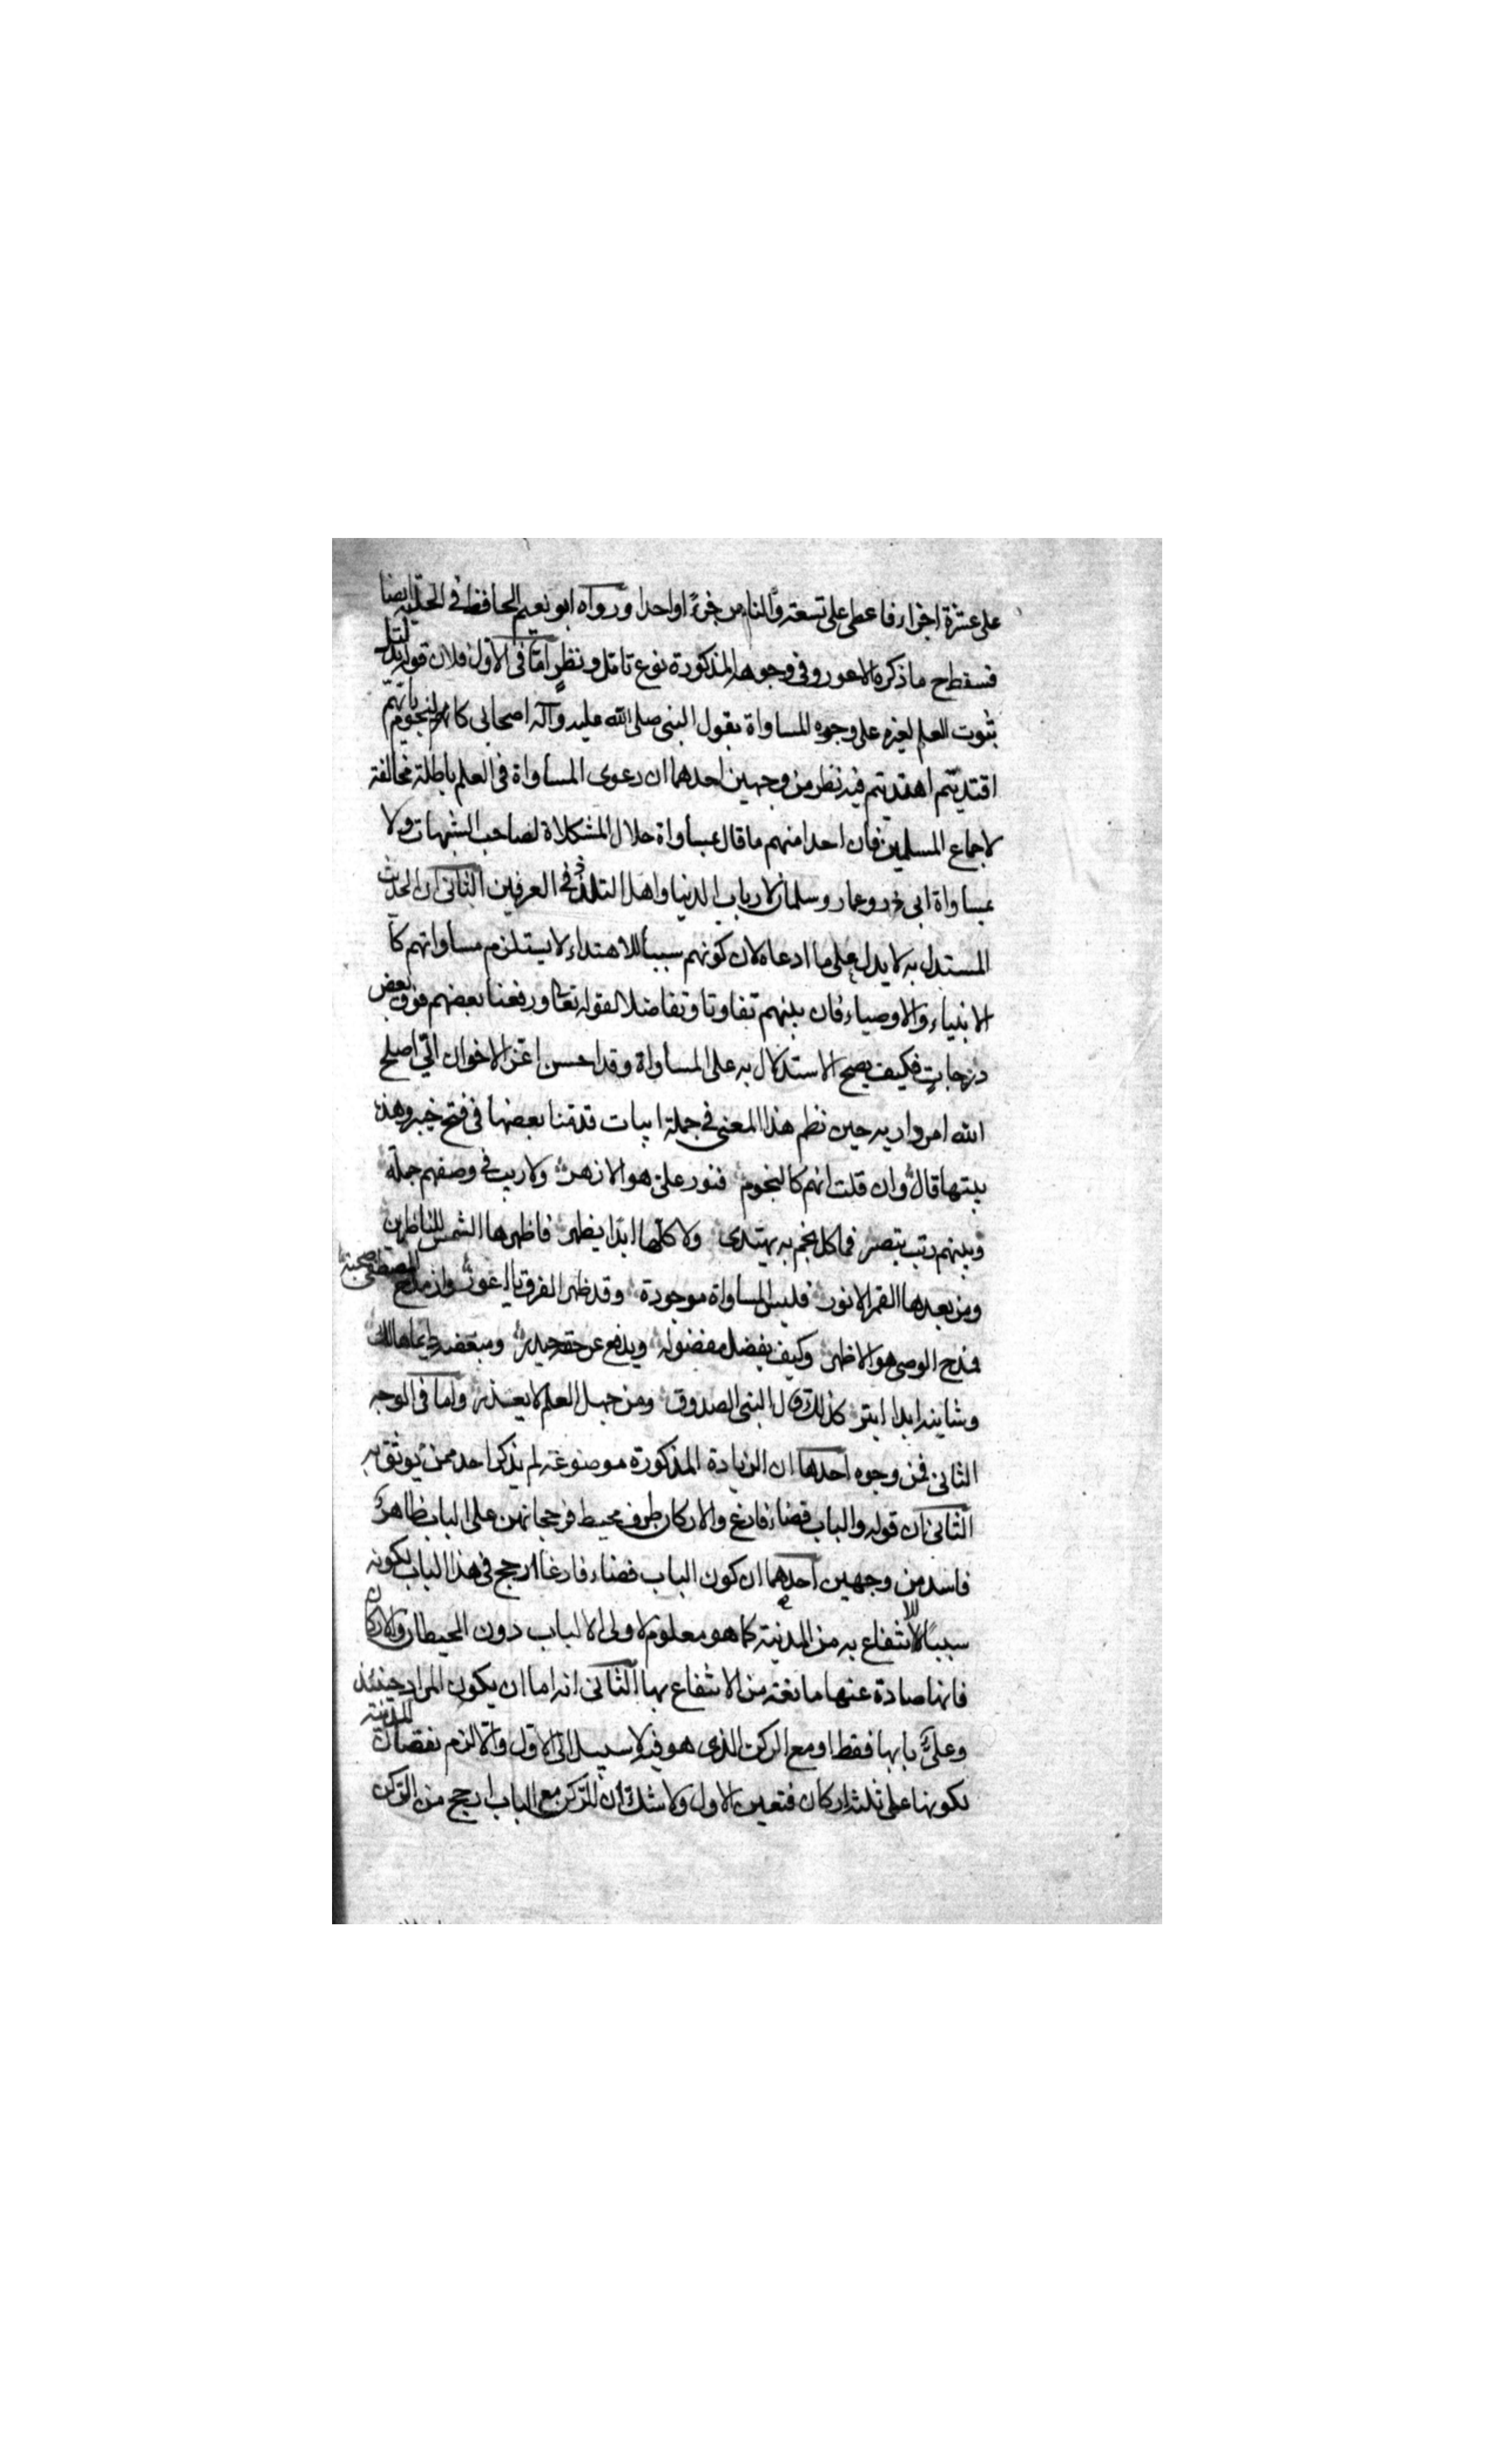 على عشرة اجزاء فاعطى على تسعة والناس جزءًا واحدا ورواه ابو نعيم الحافظ في الحلية ايضا
فسقط ح ما ذكره الاعور وفي وجوهه المذكورة نوع تامل ونظر اما في الاول فلان قوله
بثبوت العلم لغيره على وجوه المساواة بقول النبي صلى الله عليه وآله اصحابي كالنجوم بايهم
اقتديتم اهتديتم فيه نظر من وجهين احدهما ان دعوى المساواة في العلم باطلة مخالفة
لاجماع المسلمين فان احدا منهم ما قال بمساواة حلال المشكلاة لصاحب الشبهات ولا
بمساواة ابى ذر وعمار وسلمان لارباب الدنيا واهل التلذذ في العرفين الثاني ان الحديث
المستدل به لا يدل على ما ادعاه لان كونهم سببا للاهتداء لا يستلزم مساواتهم كا
الانبياء والاوصياء فان بينهم تفاوتا وتفاضلا لقوله تعالى ورفعنا بعضهم فوق بعض
درجات فكيف يصح الاستدلال به على المساواة وقد احسن اعز الاخوان التي اصلح
الله امر داريه حين نظم هذا المعنى في جملة ابيات قدمنا بعضها في فتح خيبر وهذه
بيتها قال وان قلت انهم كالنجوم فنور علي هو الازهر ولا ريب في وصفهم جملة
وبينهم رتب تبصر فما كل نجم به يهتدى ولا كلها ابدا يظهر فاظهرها الشمس للناظرين
ومن بعدها القمر الانور فليس المساواة موجودة وقد ظهر الفرق يا اعور وان مدح المصطفى صحبة
فمدح الوصي هو الاظهر وكيف يفضل مفضوله ويدفع عن حقه حيدر ومبغضه هالك
وشانيه ابدا ابتر كذلك قال النبي الصدوق ومن جهل العلم لا يعذر واما في الوجه
الثاني فمن وجوه احدها ان الزيادة المذكورة موضوعة لم يذكر احد ممن يوثق به
الثاني ان قوله والباب فضاء فارغ والاركان طرف محيط فرجحانهن على الباب ظاهر
فاسد من وجهين احدهما ان كون الباب فضاء فارغا ارجح في هذا الباب لكونه
سببًا للانتفاع به من المدينة كما هو معلوم لاولى الالباب دون الحيطان والاركان
فانها صادة عنها مانعة من الانتفاع بها الثاني انه اما ان يكون المراد حينئذ
وعليٌّ بابها فقط او مع الركن الذي هو فيه لا سبيل الى الاول والا لزم نقصان المدينة
لكونها على ثلثة اركان فتعين الاول ولا شك ان الركن مع الباب ارجح من الركن